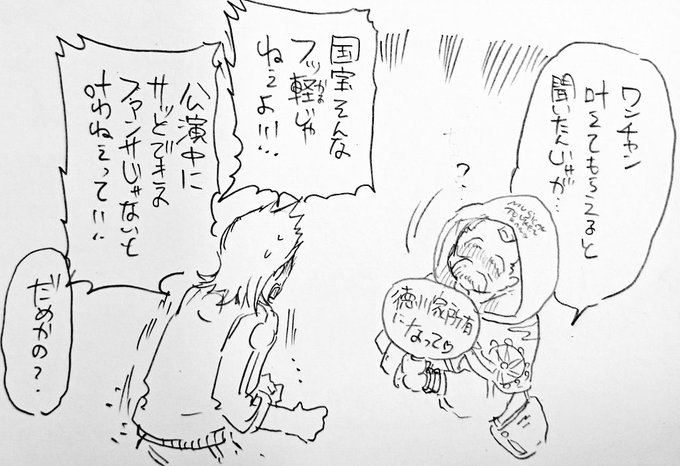 ワンチャン
叶えてもらえると
聞いたんじゃが…
?
MUSICAL
徳川家所有
になって♡
国宝そんな
フッ軽じゃ
かる
ねぇよ!!!
公演中に
サッとできる
ファンサじゃないと
叶わねぇって!!!
だめかの?